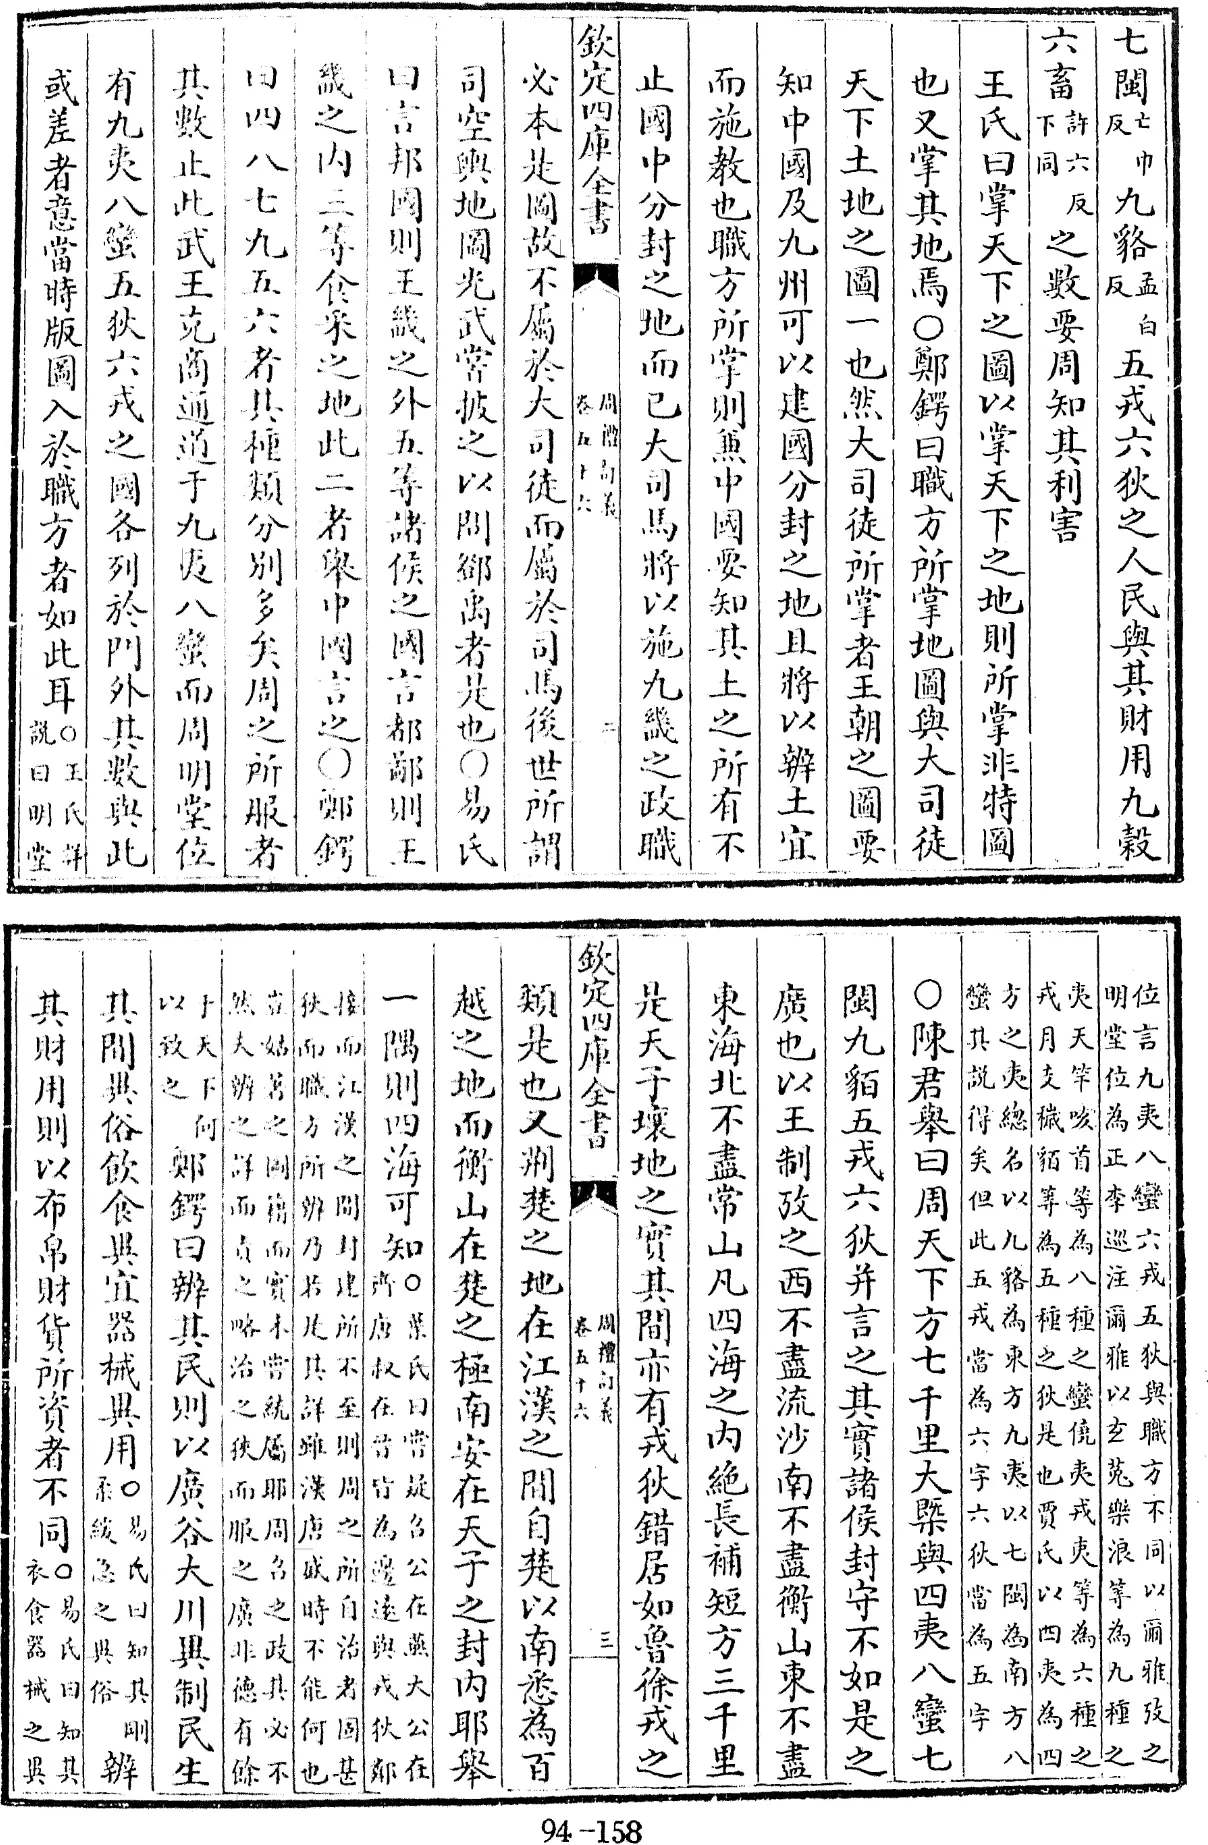 七閩亡巾反九貉孟白反五戎六狄之人民與其財用九穀
六畜許六反下同之數要周知其利害
王氏曰掌天下之圖以掌天下之地則所掌非特圖
也又掌其地焉○鄭鍔曰職方所掌地圖與大司徒
天下土地之圖一也然大司徒所掌者王朝之圖要
知中國及九州可以建國分封之地且將以辨土宜
而施教也職方所掌則兼中國要知其土之所有不
止國中分封之地而已大司馬將以施九畿之政職
欽定四庫全書 周禮訂義卷五十六 二
必本是圖故不屬於大司徒而屬於司馬後世所謂
司空輿地圖光武嘗披之以問鄧禹者是也○易氏
曰言邦國則王畿之外五等諸侯之國言都鄙則王
畿之内三等食采之地此二者舉中國言之○鄭鍔
曰四八七九五六者其種類分別多矣周之所服者
其數止此武王克商通道于九夷八蠻而周明堂位
有九夷八蠻五狄六戎之國各列於門外其數與此
或差者意當時版圖入於職方者如此耳○王氏詳說曰明堂
位言九夷八蠻六戎五狄與職方不同以爾雅攷之
明堂位為正李巡注爾雅以玄菟樂浪等為九種之
夷天竿咳首等為八種之蠻僥夷戎夷等為六種之
戎月支穢貊等為五種之狄是也賈氏以四夷為四
方之夷總名以九貉為東方九夷以七閩為南方八
蠻其説得矣但此五戎當為六字六狄當為五字
○陳君舉曰周天下方七千里大槩與四夷八蠻七
閩九貊五戎六狄并言之其實諸侯封守不如是之
廣也以王制攷之西不盡流沙南不盡衡山東不盡
東海北不盡常山凡四海之内絶長補短方三千里
是天子壤地之實其間亦有戎狄錯居如魯徐戎之
欽定四庫全書 周禮訂義卷五十六 三
類是也又荆楚之地在江漢之間自楚以南悉為百
越之地而衡山在楚之極南安在天子之封内耶舉
一隅則四海可知○葉氏曰嘗疑召公在燕大公在齊唐叔在晉皆為邊遠與戎狄鄰
接而江漢之間封建所不至則周之所自治者固甚
狄而職方所辨乃若此其詳雖漢唐盛時不能何也
豈姑著之圖籍而實未嘗統屬耶周召之政其必不
然夫辨之詳而責之略治之狹而服之廣非德有餘
于天下何以致之鄭鍔曰辨其民則以廣谷大川異制民生
其間異俗飲食異宜器械異用○易氏曰知其剛柔緩急之異俗辨
其財用則以布帛財貨所資者不同○易氏曰知其衣食器械之異
94-158